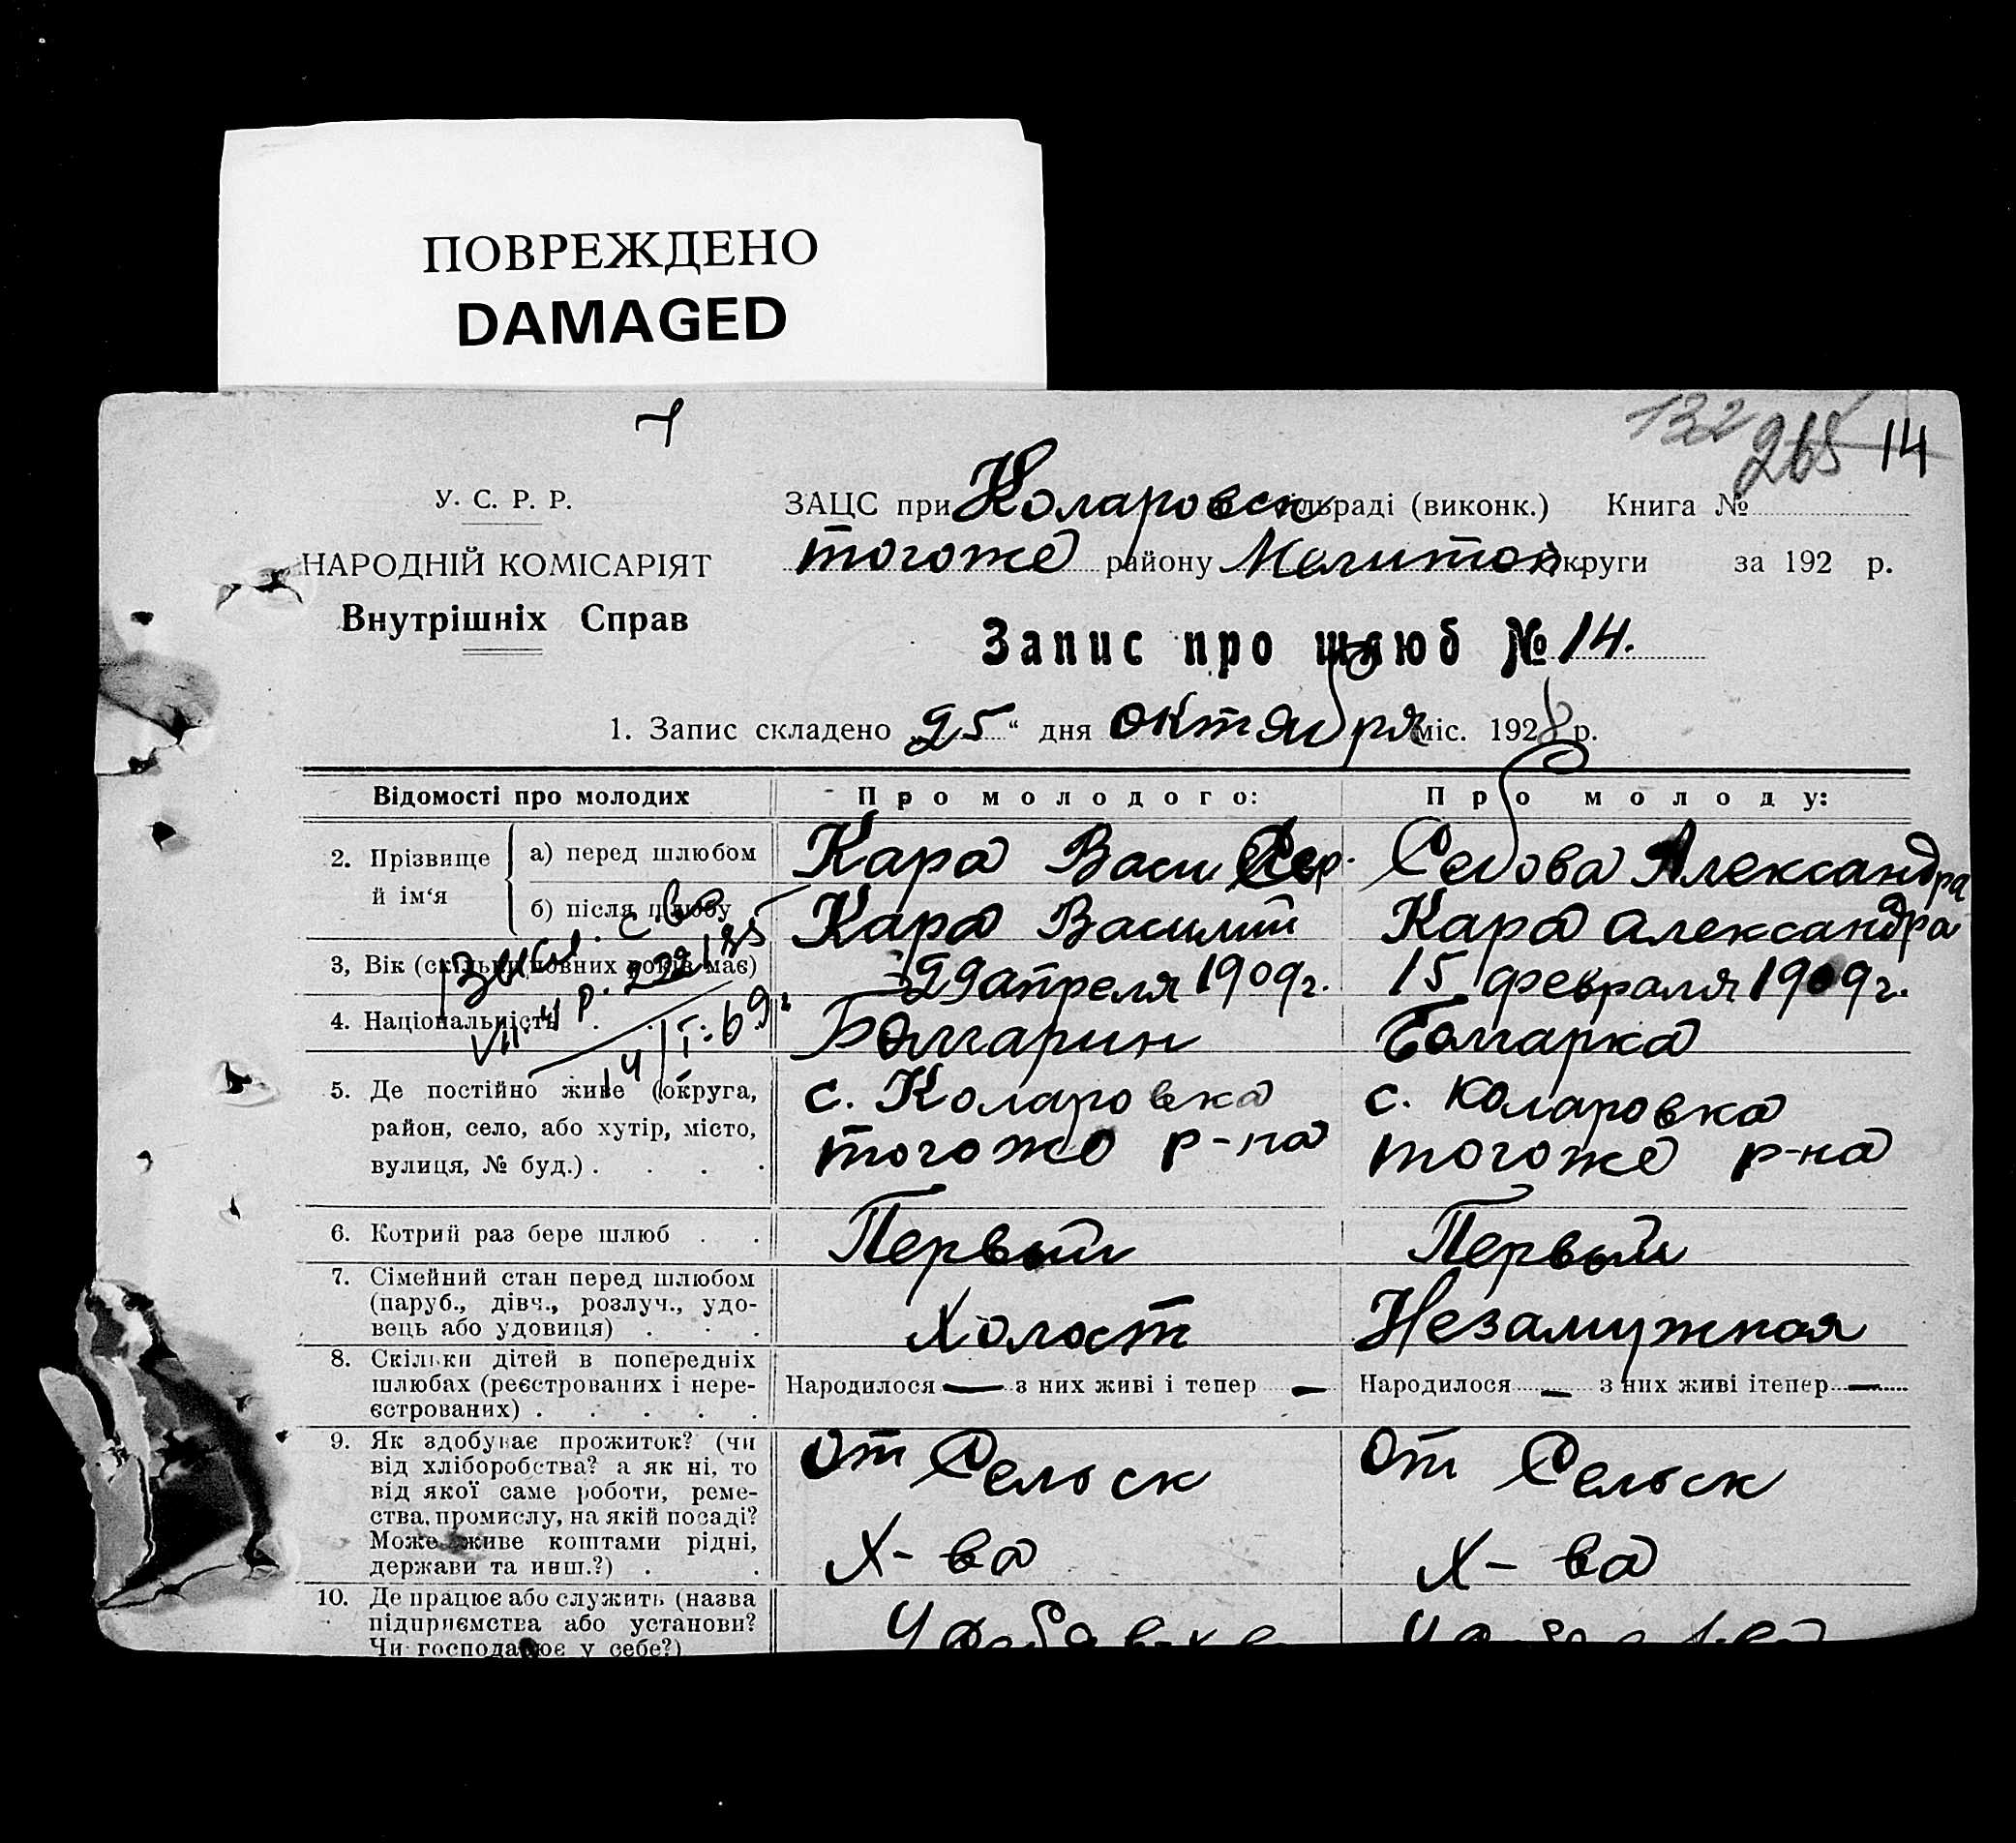 ПОВРЕЖДЕНО
DAMAGED
132 265 14
У. С. Р. Р.
НАРОДНІЙ КОМІСАРІЯТ
Внутрішніх Справ
ЗАЦС при Коларовск сільраді (виконк.) Книга №
тогоже району Мелитоп округи за 192 р.
Запис про шлюб № 14.
1. Запис складено „25“ дня октября міс. 1928 р.
Відомості про молодих Про молодого: Про молоду:
2. Прізвище й ім‘я
а) перед шлюбом Кара Васи Кара Александра
б) після шлюбу Кара Василий Кара Александра
3, Вік (скільки повних років має) 29 апреля 1909 г. 15 февраля 1909 г.
4. Національність Болгарин Болгарка
5. Де постійно живе (округа, с. Коларовка с. Коларовка
район, село, або хутір, місто, тогоже р-на тогоже р-на
вулиця, № буд.)
6. Котрий раз бере шлюб Первый Первый
7. Сімейний стан перед шлюбом
(паруб., дівч., розлуч., удо-
вець або удовиця) Холост Незамужная
8. Скільки дітей в попередніх
шлюбах (реєстрованих і нере- Народилося — з них живі і тепер — Народилося — з них живі ітепер —
єстрованих)
9. Як здобуває прожиток? (чи От Сельск От Сельск
від хліборобства? а як ні, то
від якої саме роботи, реме-
ства, промислу, на якій посаді?
Може живе коштами рідні, Х-ва Х-ва
держави та инш.?)
10. Де працює або служить (назва
підприємства або установи?
Чи господарює у себе?)